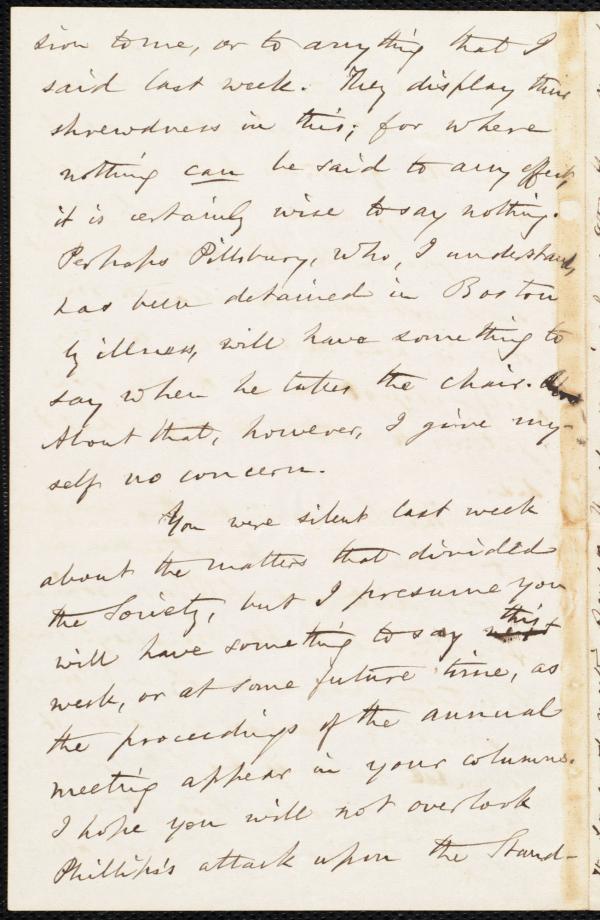 sion to me, or to anything that I
said last week. They display their
shrewdness in this; for where
nothing can be said to any effect,
it is certainly wise to say nothing.
Perhaps Pillsbury, who, I understand,
has been detained in Boston
by illness, will have something to
say when he takes the chair.
About that, however, I give my-
self no concern.
You were silent last week
about the matters that divided
the Society, but I presume you
will have something to say this
week, or at some future time, as
the proceedings of the annual
meeting appear in your columns.
I hope you will not overlook
Phillips's attack upon the Stand-